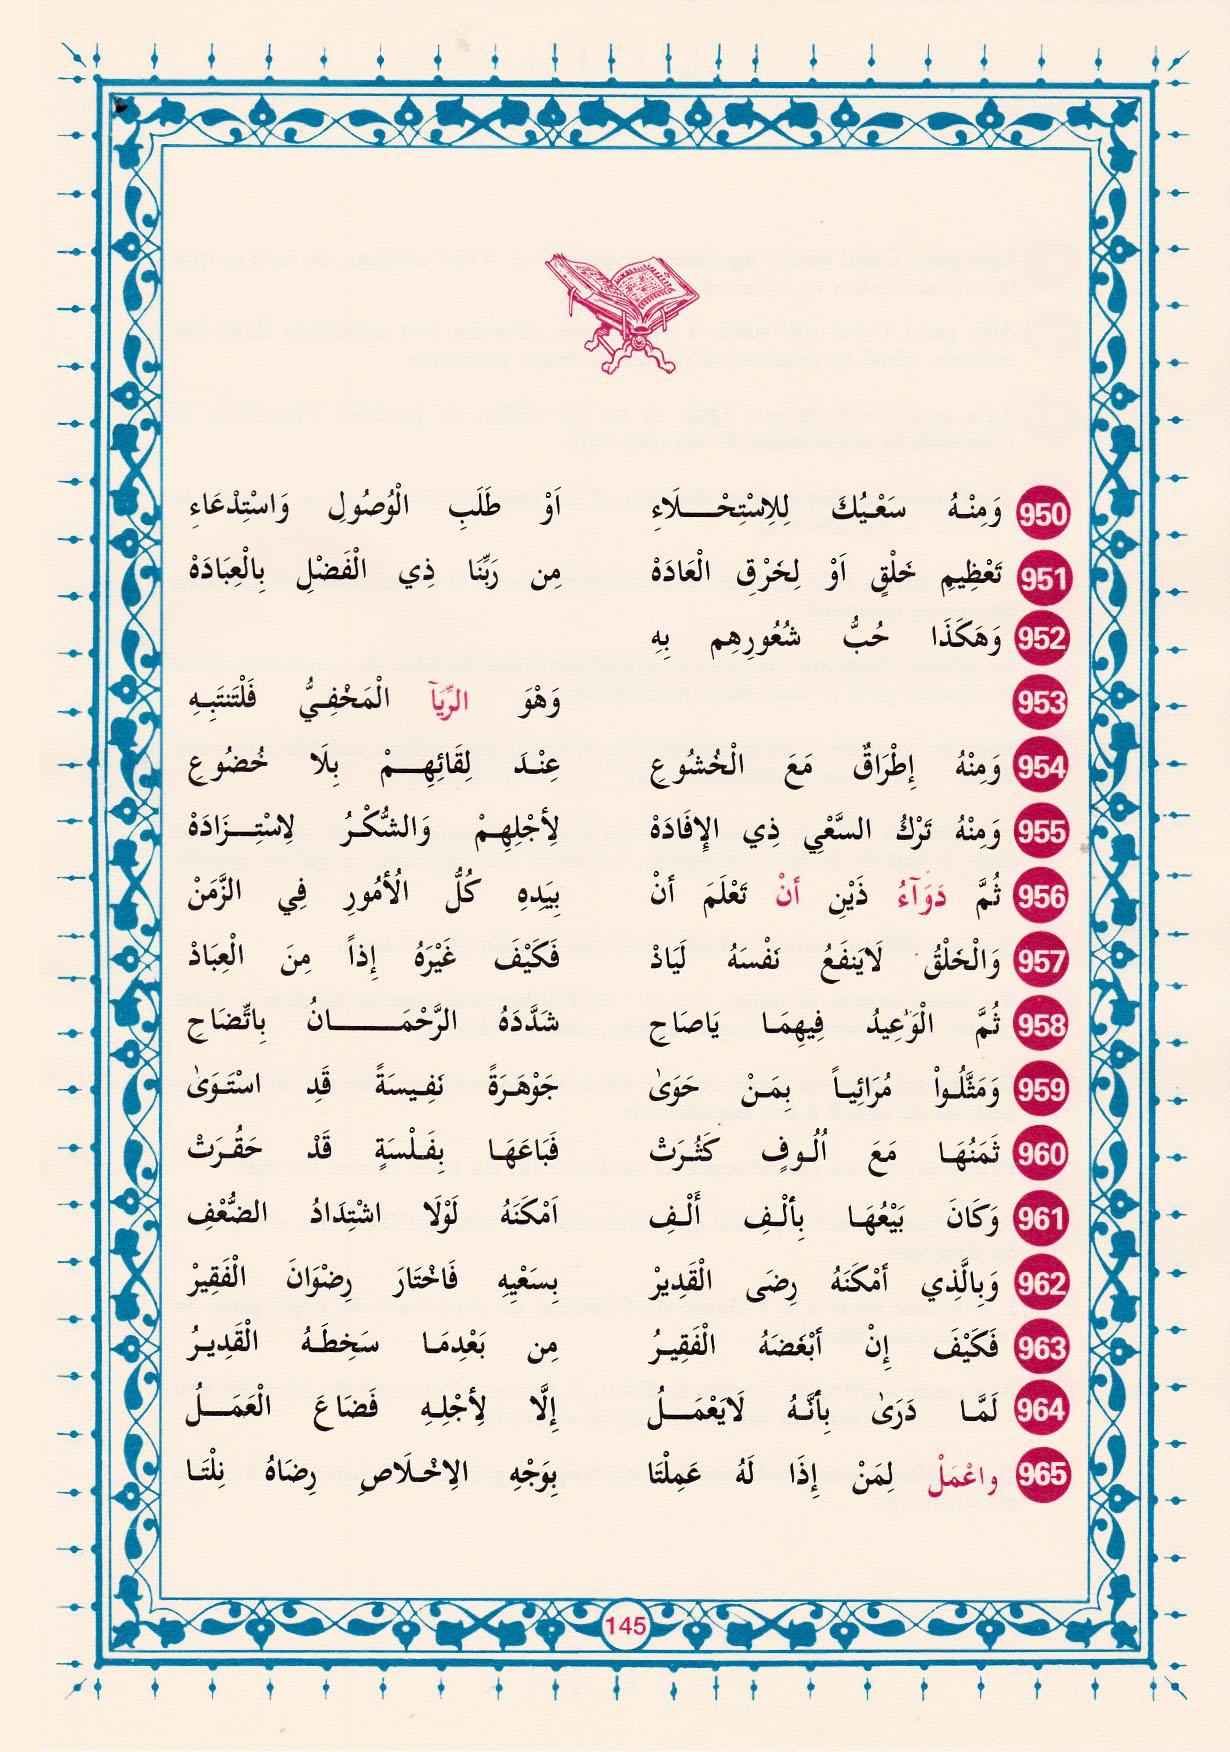 950 وَمِنْهُ سَعْيُكَ لِلِاسْتِحْلَاءِ اَوْ طَلَبِ الْوُصُولِ وَاسْتِدْعَاءِ
951 تَعْظِيمِ خَلْقٍ اَوْ لِخَرْقِ الْعَادَهْ مِن رَبِّنَا ذِي الْفَضْلِ بِالْعِبَادَهْ
952 وَهَكَذَا حُبُّ شُعُورِهِم بِهِ
953 وَهْوَ الرِّيَآ الْمَخْفِيُّ فَلْتَنتَبِهِ
954 وَمِنْهُ إِطْرَاقٌ مَعَ الْخُشُوعِ عِنْدَ لِقَائِهِمْ بِلَا خُضُوعِ
955 وَمِنْهُ تَرْكُ السَّعْيِ ذِي الإِفَادَهْ لِأَجْلِهِمْ وَالشُّكْرُ لِاسْتِزَادَهْ
956 ثُمَّ دَوَآءُ ذَيْنِ أنْ تَعْلَمَ أنْ بِيَدِهِ كُلُّ الْأُمُورِ فِي الزَّمَنْ
957 وَالْخَلْقُ لَايَنفَعُ نَفْسَهُ لَيَادْ فَكَيْفَ غَيْرَهُ إِذاً مِنَ الْعِبَادْ
958 ثُمَّ الْوَعِيدُ فِيهِمَا يَاصَاحِ شَدَّدَهُ الرَّحْمَانُ بِاتِّضَاحِ
959 وَمَثَّلُواْ مُرَائِياً بِمَنْ حَوَىٰ جَوْهَرَةً نَفِيسَةً قَدِ اسْتَوَىٰ
960 ثَمَنُهَا مَعَ اُلُوفٍ كَثُرَتْ فَبَاعَهَا بِفَلْسَةٍ قَدْ حَقُرَتْ
961 وَكَانَ بَيْعُهَا بِألْفِ أَلْفِ اَمْكَنَهُ لَوْلَا اشْتِدَادُ الضُّعْفِ
962 وَبِالَّذِي أمْكَنَهُ رِضَى الْقَدِيرْ بِسَعْيِهِ فَاخْتَارَ رِضْوَانَ الْفَقِيرْ
963 فَكَيْفَ إِنْ أَبْغَضَهُ الْفَقِيرُ مِن بَعْدِمَا سَخِطَهُ الْقَدِيرُ
964 لَمَّا دَرَىٰ بِأنَّهُ لَايَعْمَلُ إِلَّا لِأَجْلِهِ فَضَاعَ الْعَمَلُ
965 واعْمَلْ لِمَنْ إِذَا لَهُ عَمِلْتَا بِوَجْهِ الِاخْلَاصِ رِضَاهُ نِلْتَا
145